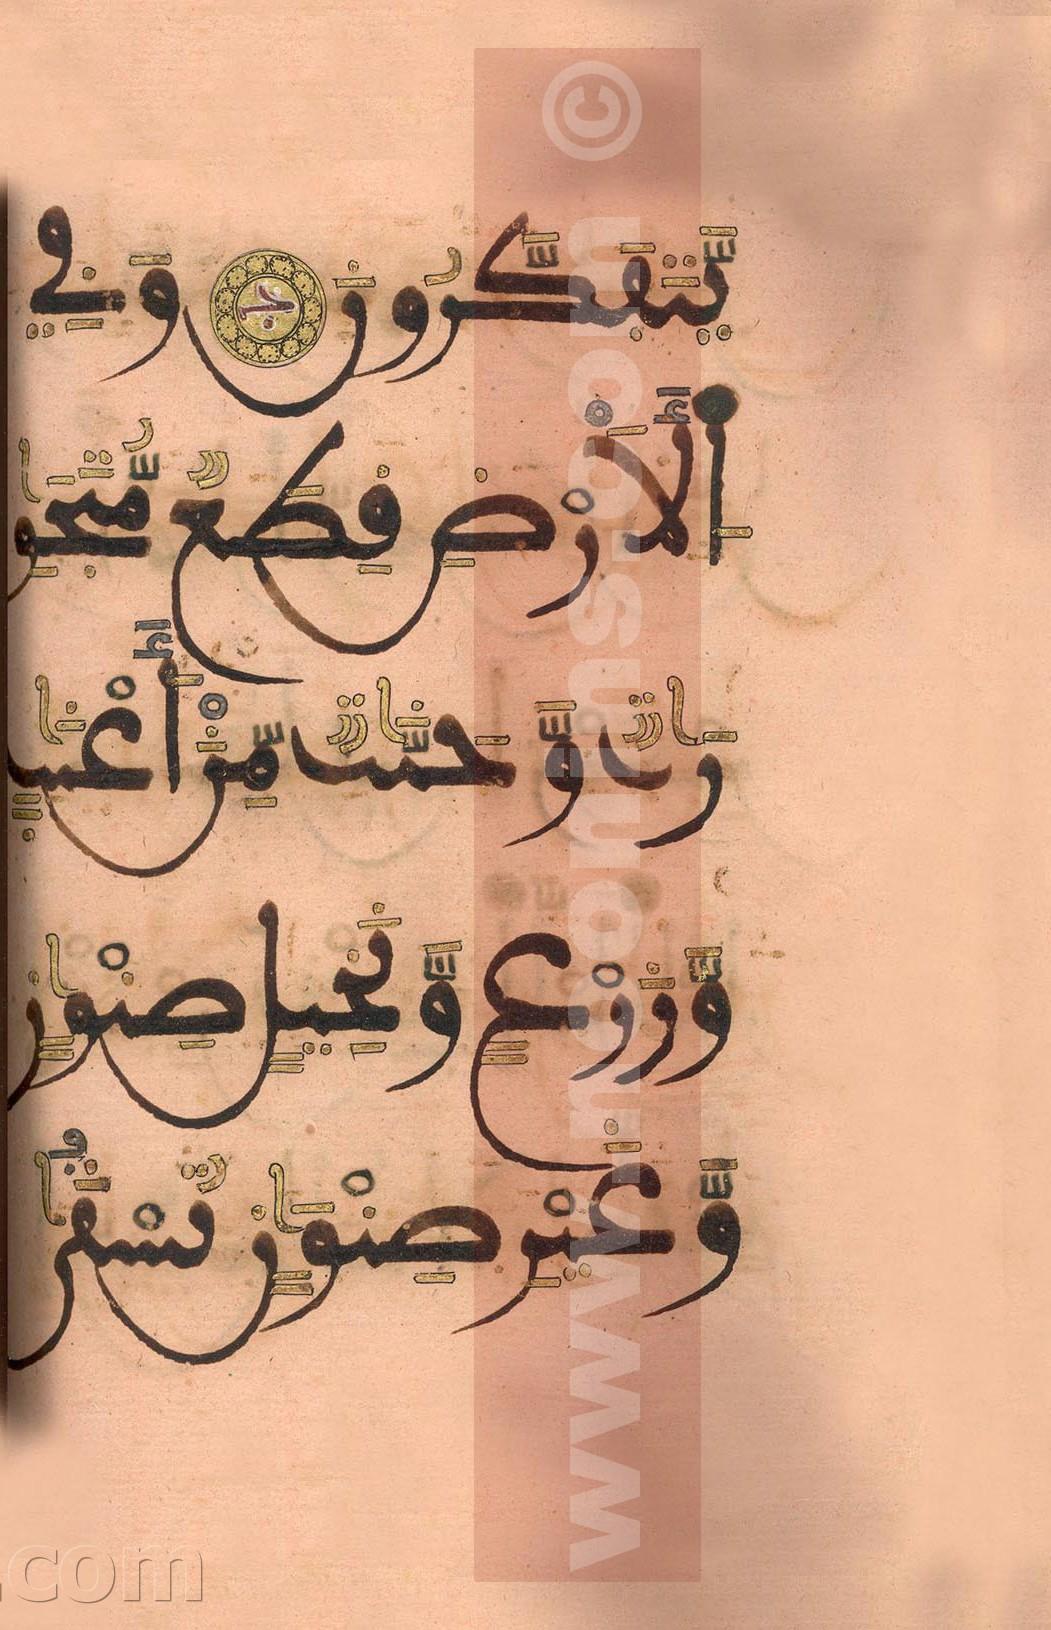 يَّتَفَكَّرُونَ وَفِي
اَ۬لْأَرْضِ قِطَعٌ مُّتَجَٰوِ
رَٰتٌ وَّجَنَّٰتٌ مِّنْ أَعْنَٰبٍ
وَّزَرْعٍ وَّنَخِيلٍ صِنْوَٰنٍ
وَّغَيْرِ صِنْوَٰنٍ تُسْقَىٰ
©
.com